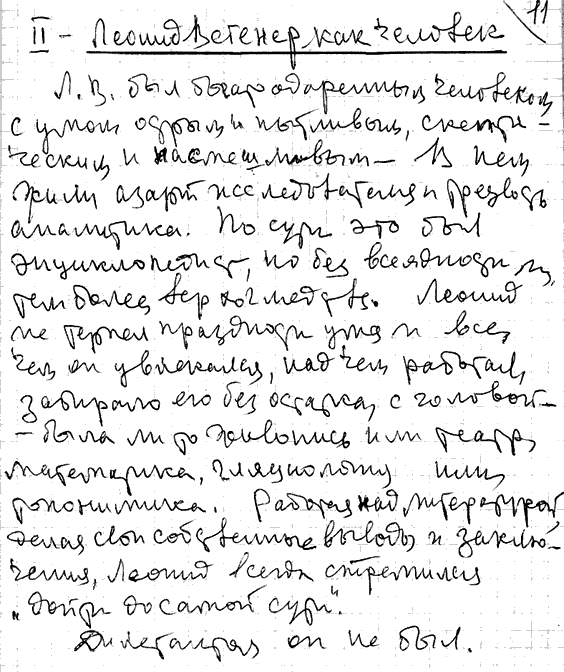 11
II - Леонид Вегенер как человек
Л. В. был благоодаренным человеком
с умом острым и пытливым, скепти-
ческим и насмешливым - В нем
жили азарт исследователя и трезвость
аналитика. По сути это был
энциклопедист, но без всеядности и,
тем более, верхоглядства. Леонид
не терпел праздности ума и все,
чем он увлекался, над чем работал,
забирало его без остатка, с головой -
- была ли то живопись или театр,
математика, гляциология или
топонимика. Работая над литературой
делая свои собственные выводы и заклю-
чения, Леонид всегда стремился
"дойти до самой сути".
Дилетантом он не был.